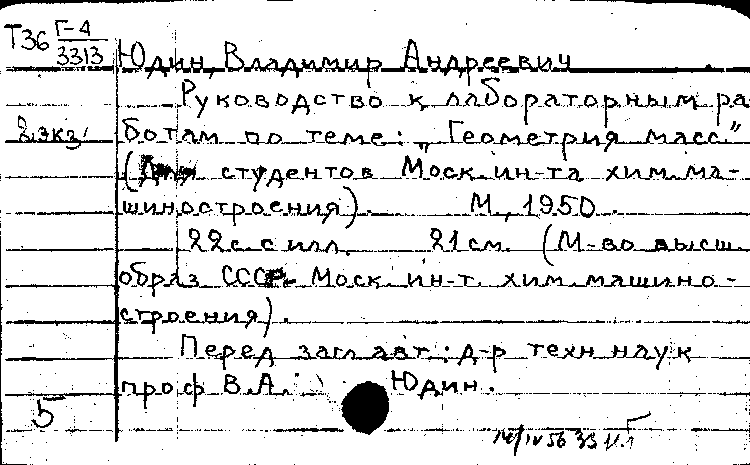 Т36 Г-4
3313
Юдин, Владимир Андреевич
Руководство к лабораторным ра
2 экз. ботам по теме: „Геометрия масс"
(Для студентов Моск. ин-та хим. ма-
шиностроения). М., 1950.
22 с. с илл. 21 см. (М-во высш.
образ. СССР. Моск. ин-т. хим. машино-
строения).
Перед загл. авт.: д-р техн. наук
проф. В.А. Юдин.
5